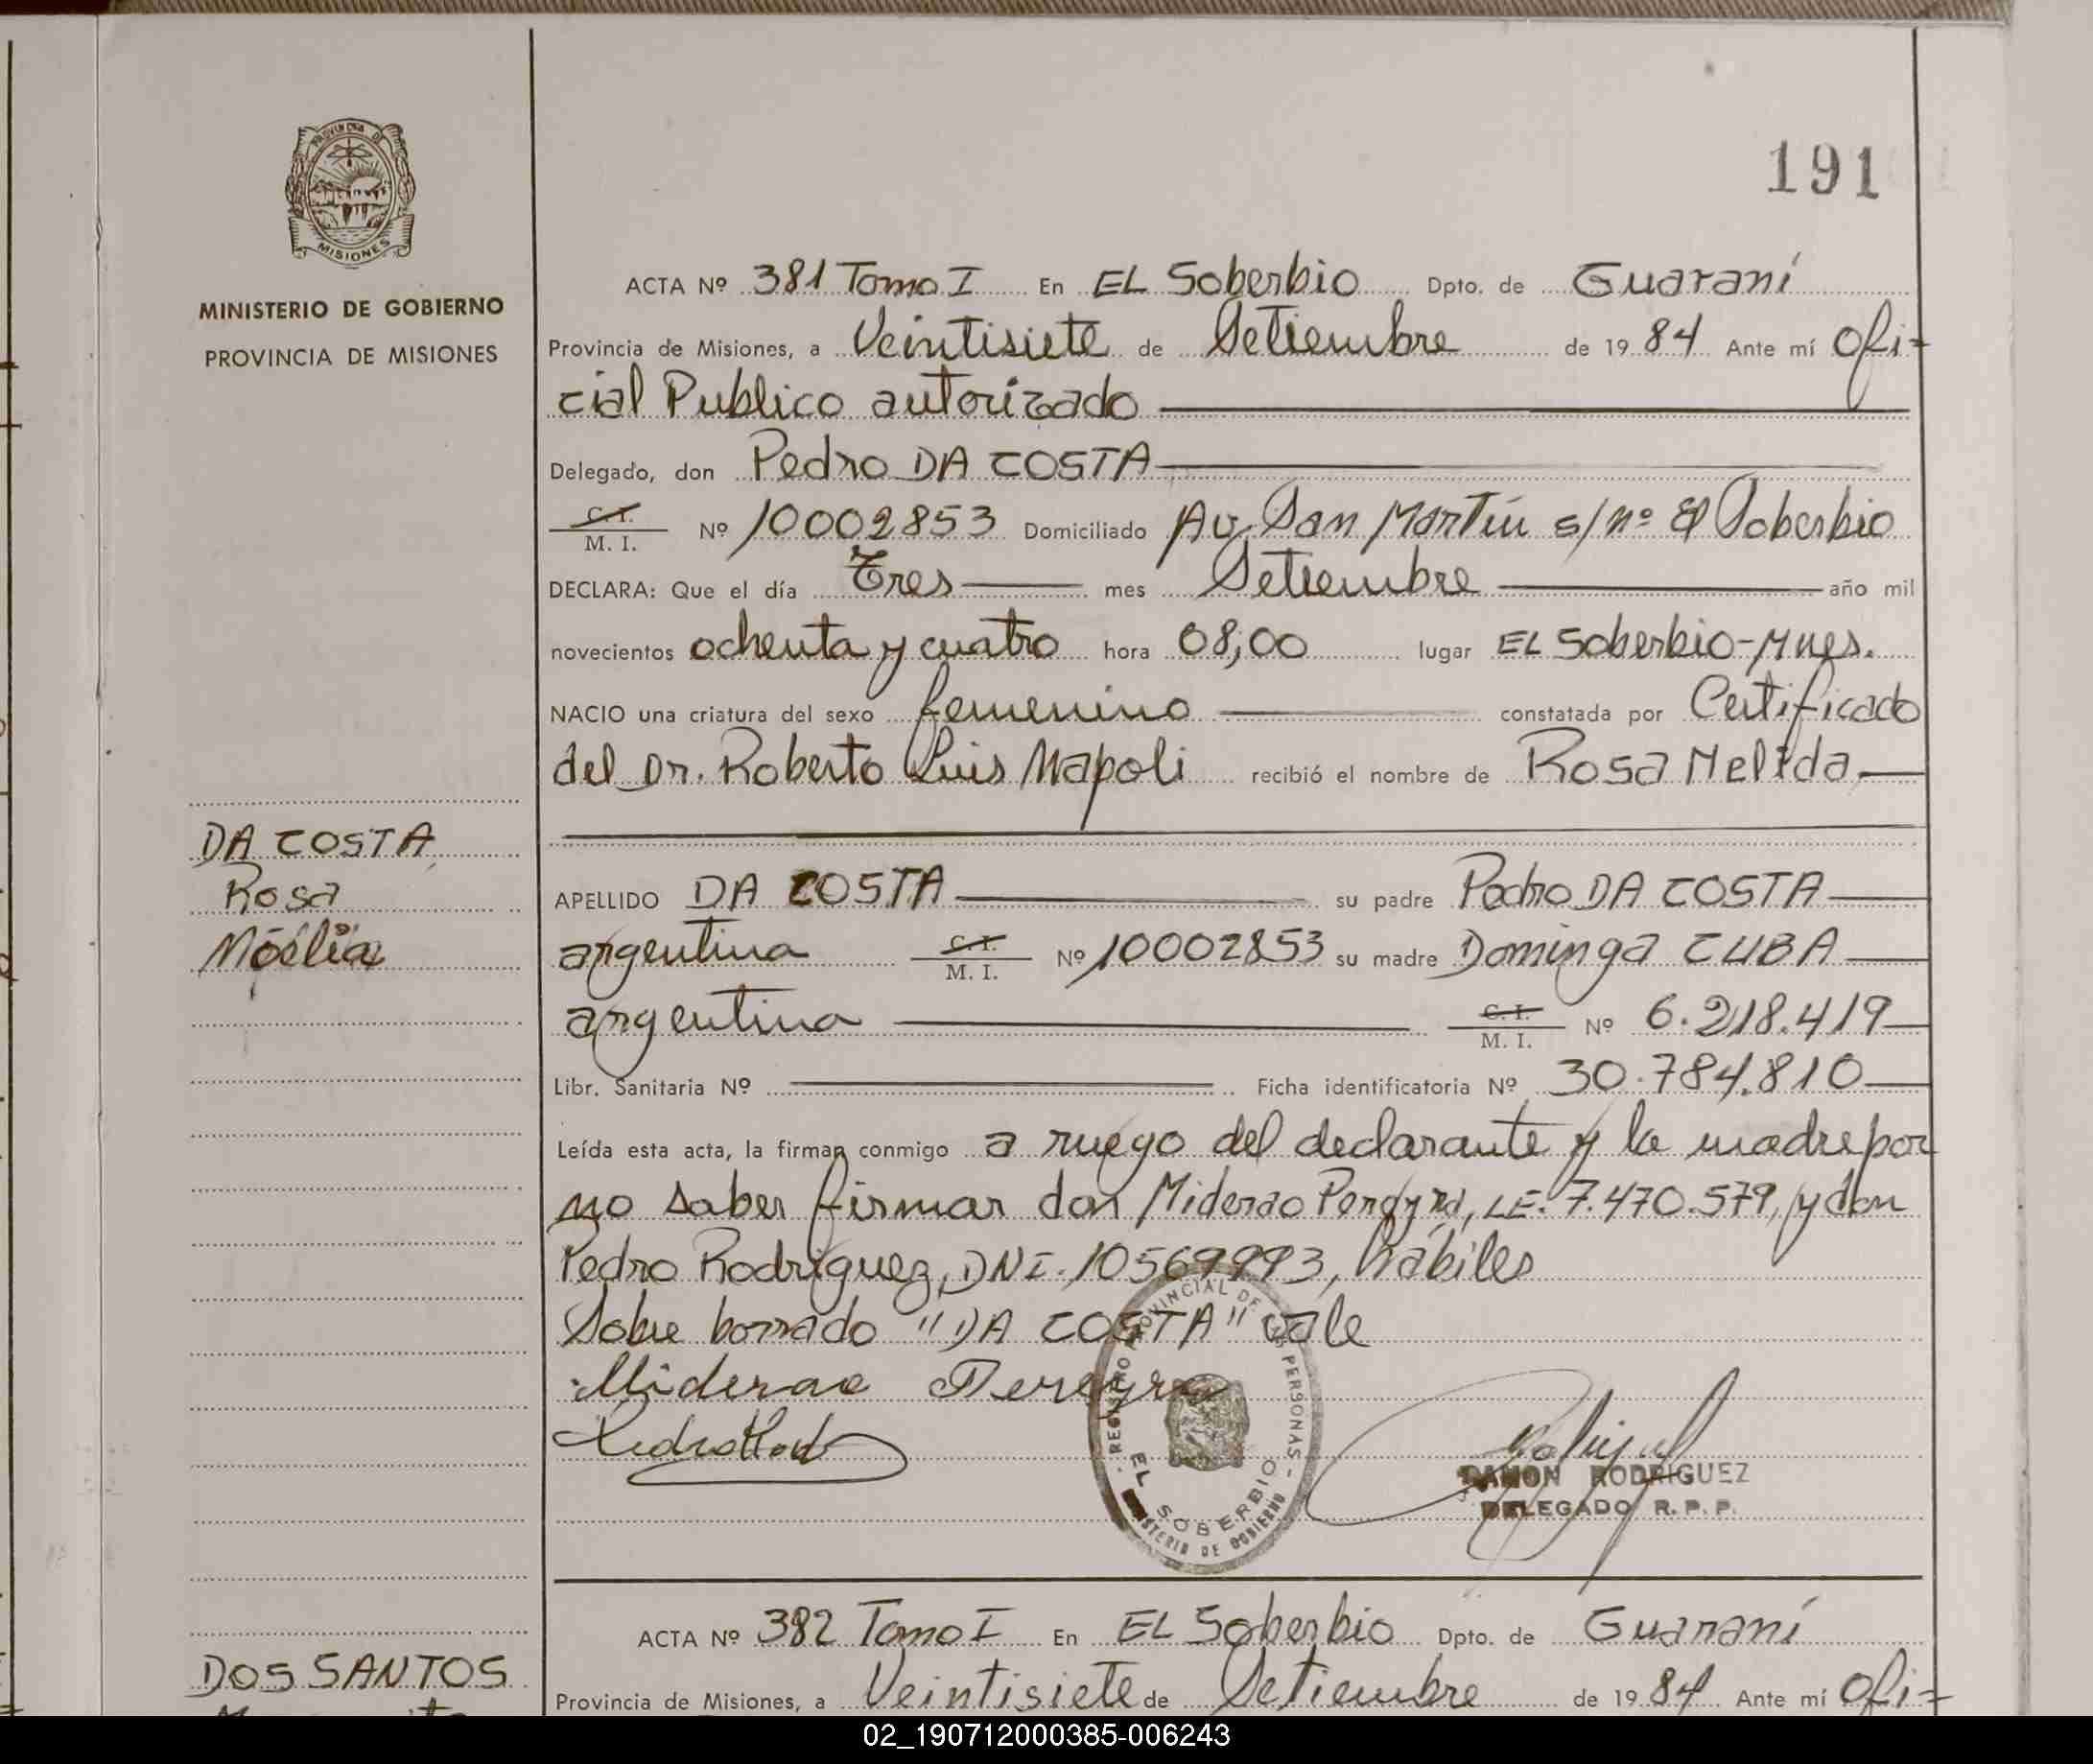 191
PROVINCIA DE
MISIONES
MINISTERIO DE GOBIERNO
PROVINCIA DE MISIONES
ACTA Nº 381 Tomo I En EL Soberbio Dpto. de Guaraní
Provincia de Misiones, a Veintisiete de Setiembre de 1984 Ante mí Ofi-
cial Publico autorizado
Delegado, don Pedro DA COSTA
C. I.
M. I. Nº 10002853 Domiciliado Av. San Martín s/nº El Soberbio
DECLARA: Que el día Tres mes Setiembre año mil
novecientos ochenta y cuatro hora 08,00 lugar EL Soberbio-Mnes.
NACIO una criatura del sexo femenino constatada por Certificado
del Dr. Roberto Luis Napoli recibió el nombre de Rosa Nelida
DA COSTA
Rosa
APELLIDO DA COSTA su padre Pedro DA COSTA
argentina C. I. M. I. Nº 10002853 su madre Dominga CUBA
argentina C. I. M. I. Nº 6.218.419
Libr. Sanitaria Nº Ficha identificatoria Nº 30.784.810
Leída esta acta, la firman conmigo a ruego del declarante y la madre por
no saber firmar don Miderao Pereyra, LE. 7.470.579, y don
Pedro Rodriguez, DNI. 10569993, hábiles
Sobre borrado "DA COSTA" vale
Miderao Pereyra
REGISTRO PROVINCIAL DE LAS PERSONAS
EL SOBERBIO
MINISTERIO DE GOBIERNO
RAMON RODRIGUEZ
DELEGADO R. P. P.
ACTA Nº 382 Tomo I En EL Soberbio Dpto. de Guaraní
DOS SANTOS
Provincia de Misiones, a Veintisiete de Setiembre de 1984 Ante mí Ofi-
02_190712000385-006243